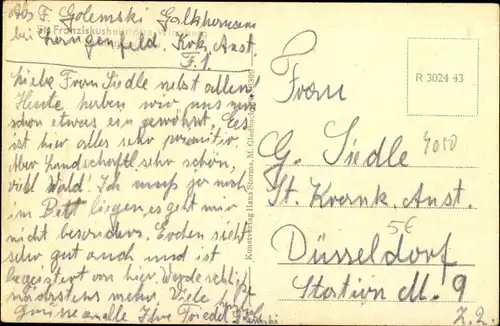 Abs F. Golemski Galkhausen
bei Langenfeld. Krk, Anst.
F. 1.
St. Franziskushe
liebe Frau Siedle nebst allen!
Heute haben wir uns nun
schon etwas ein gewöhnt, Es
ist hier alles sehr primitiv,
Aber Landschaftl sehr schön,
viel Wald! Ich muß ja noch
im Bett liegen, es geht mir
nicht besonders. Evchen sieht
sehr gut auch und ist
begeistert von hier. Werde schließ
nächstens mehr, Viele
Grüsse an alle Ihre Friedel
Kunstverlag Hans Sturms, M. Gladbach
R 3024 43
Frau
G. Siedle
St. Krank. Anst.
Düsseldorf
Station M. 9
Z. 2.
4000
5€